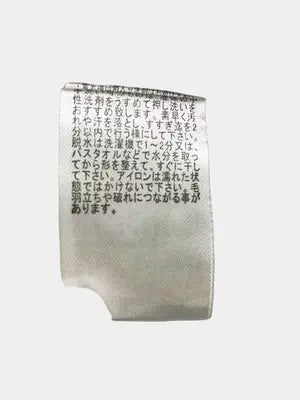 性洗剤をうすめて。押し洗いを
おすすめ致します。素早く汚
れや汗を落とし、すすぎ迄を2
分以内で行う様にして下さい。
脱水は洗濯機で1〜2分又は、
バスタオルなどで水分を取っ
てから形を整えて、すぐに干し
て下さい。アイロンは濡れた状
態ではかけないで下さい。毛
羽立ちや破れにつながる事が
あります。